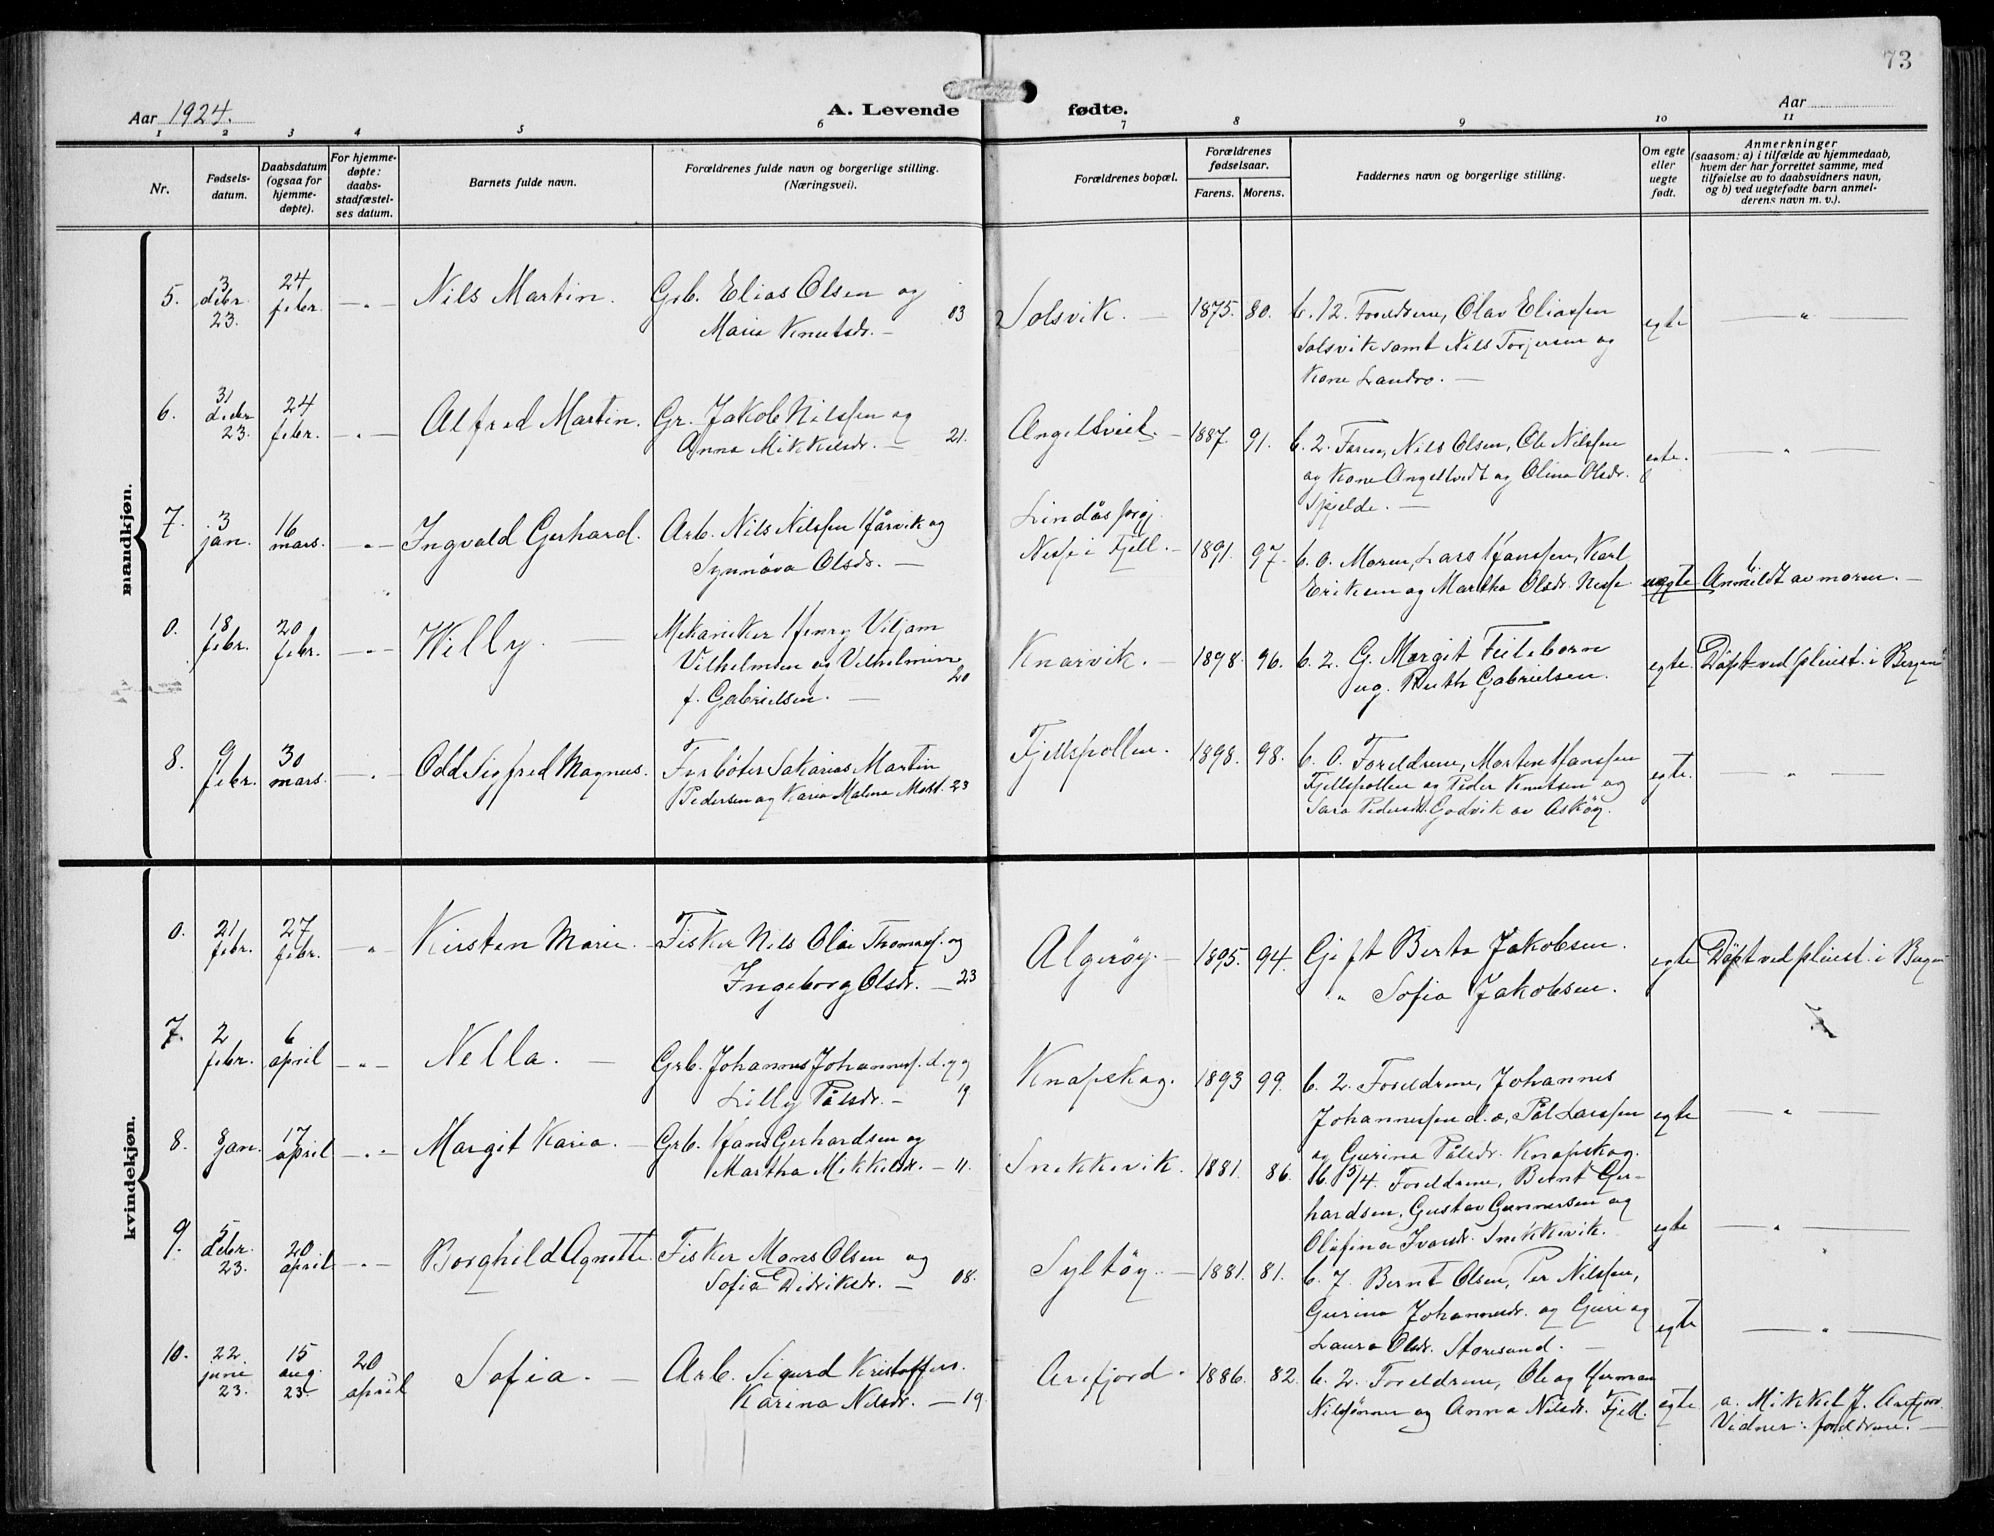 73
Aar 1924.
A. Levende fødte.
Aar
1 2 3 4 5 6 7 8 9 10 11
Nr.
Fødsels-
datum.
Daabsdatum
(ogsaa for
hjemme-
døpte).
For hjemme-
døpte:
daabs-
stadfæstel-
ses datum.
Barnets fulde navn.
Forældrenes fulde navn og borgerlige stilling.
(Næringsvei).
Forældrenes bopæl.
Forældrenes
fødselsaar.
Farens. Morens.
Faddernes navn og borgerlige stilling.
Om egte
eller
uegte
født.
Anmerkninger
(saasom: a) i tilfælde av hjemmedaab,
hvem der har forrettet samme, med
tilføielse av to daabsvidners navn,
og b) ved uegtefødte barn anmel-
derens navn m. v.).
mandkjøn.
5.
3
debr.
23.
24
febr.
— " —
Nils Martin.
Grb. Elias Olsen og
Maria Knutsdr. — 03
Solsvik. —
1875. 80.
b. 12. Foreldrene, Olav Eliassen
Solsvik samt Nils Torjersen og
Kone Landro. —
egte
— " —
6.
31
debr
23.
24
febr.
— " —
Alfred Martin.
Gr. Jakob Nilssen og
Anna Mikkelsdr. — 21.
Angeltveit. —
1887. 91.
b. 2. Faren, Nils Olsen, Ole Nilssen
og Kone Angeltvedt og Olina Olsdr.
Spjelde. —
egte.
— " —
7.
3
jan.
16
mars.
— " —
Ingvald Gerhard.
Arb. Nils Nilssen Hårvik og
Synnöva Olsdr. —
Lindås prgj.
Nesse i Fjell. —
1891. 97.
b. 0. Moren, Lars Hanssen, Karl
Eriksen og Martha Olsdr. Nesse
uegte
Anmeldt av moren. —
0.
18
febr.
20
febr.
— " —
Willy. —
Mekaniker Henry Viljam
Vilhelmsen og Vilhelmine
f. Gabrielsen. — 20
Knarvik. —
1898. 96.
b. 2. G. Margit Feileborn
ug. Ruth Gabrielsen.
egte.
Döpt ved pleiest. i Bergen
8.
9
febr.
30
mars.
— " —
Odd Sigfred Magnus.
Fyrböter Sakarias Martin
Pedersen og Karia Malena Mokt. 23
Fjellspollen.
1898. 98.
b. 0. Foreldrene, Morten Hanssen
Fjellspollen og Peder Knutsen og
Sara Pedersdr. Godvik av Asköy.
egte.
— " —
kvindekjøn.
0.
21
febr.
27
febr.
— "
Kirsten Marie. —
Fisker Nils Olai Thomass. og
Ingeborg Olsdr. — 23
Algeröy. —
1895. 94.
Gift Berta Jakobsen.
" Sofia Jakobsen.
egte
Döpt ved pleiest. i Bergen
7.
2
febr.
6
april
— " —
Nella. —
Grb. Johannes Johanness. d. y. og
Lilly Pålsdr. — 19
Knapskog.
1893 99.
b. 2. Foreldrene, Johannes
Johannessen d. e., Pål Larssen
og Gurina Pålsdr. Knapskog.
egte
— " —
8.
8 jan.
17
april
— " —
Margit Karia. —
Grb. Hans Gerhardsen og
Martha Mikkelsdr. — 11.
Snekkevik.
1881. 86.
b. 15/4. Foreldrene, Bernt Ger-
hardsen, Gustav Gunnersen og
Olufina Ivarsdr. Snekkevik.
egte
— " —
9.
5
debr.
23.
20
april
— " —
Borghild Agnette.
Fisker Mons Olsen og
Sofia Didriksdr. — 08.
Syltöy. —
1881. 81.
b. 7. Bernt Olsen, Per Nilssen,
Gurina Johannesdr. og Guri og
Laura Olsdr. Storesund. —
egte
— " —
10.
22.
juni
23.
15
aug.
23.
20
april
Sofia. —
Arb. Sigurd Kristoffers.
Karina Nilsdr. — 19.
Arefjord.
1886. 82.
b. 2. Foreldrene, Ole og Herman
Nilssönner og Anna Nilsdr. Fjell.
egte
a. Mikkel J. Arefjord.
Vidner: foreldrene. —